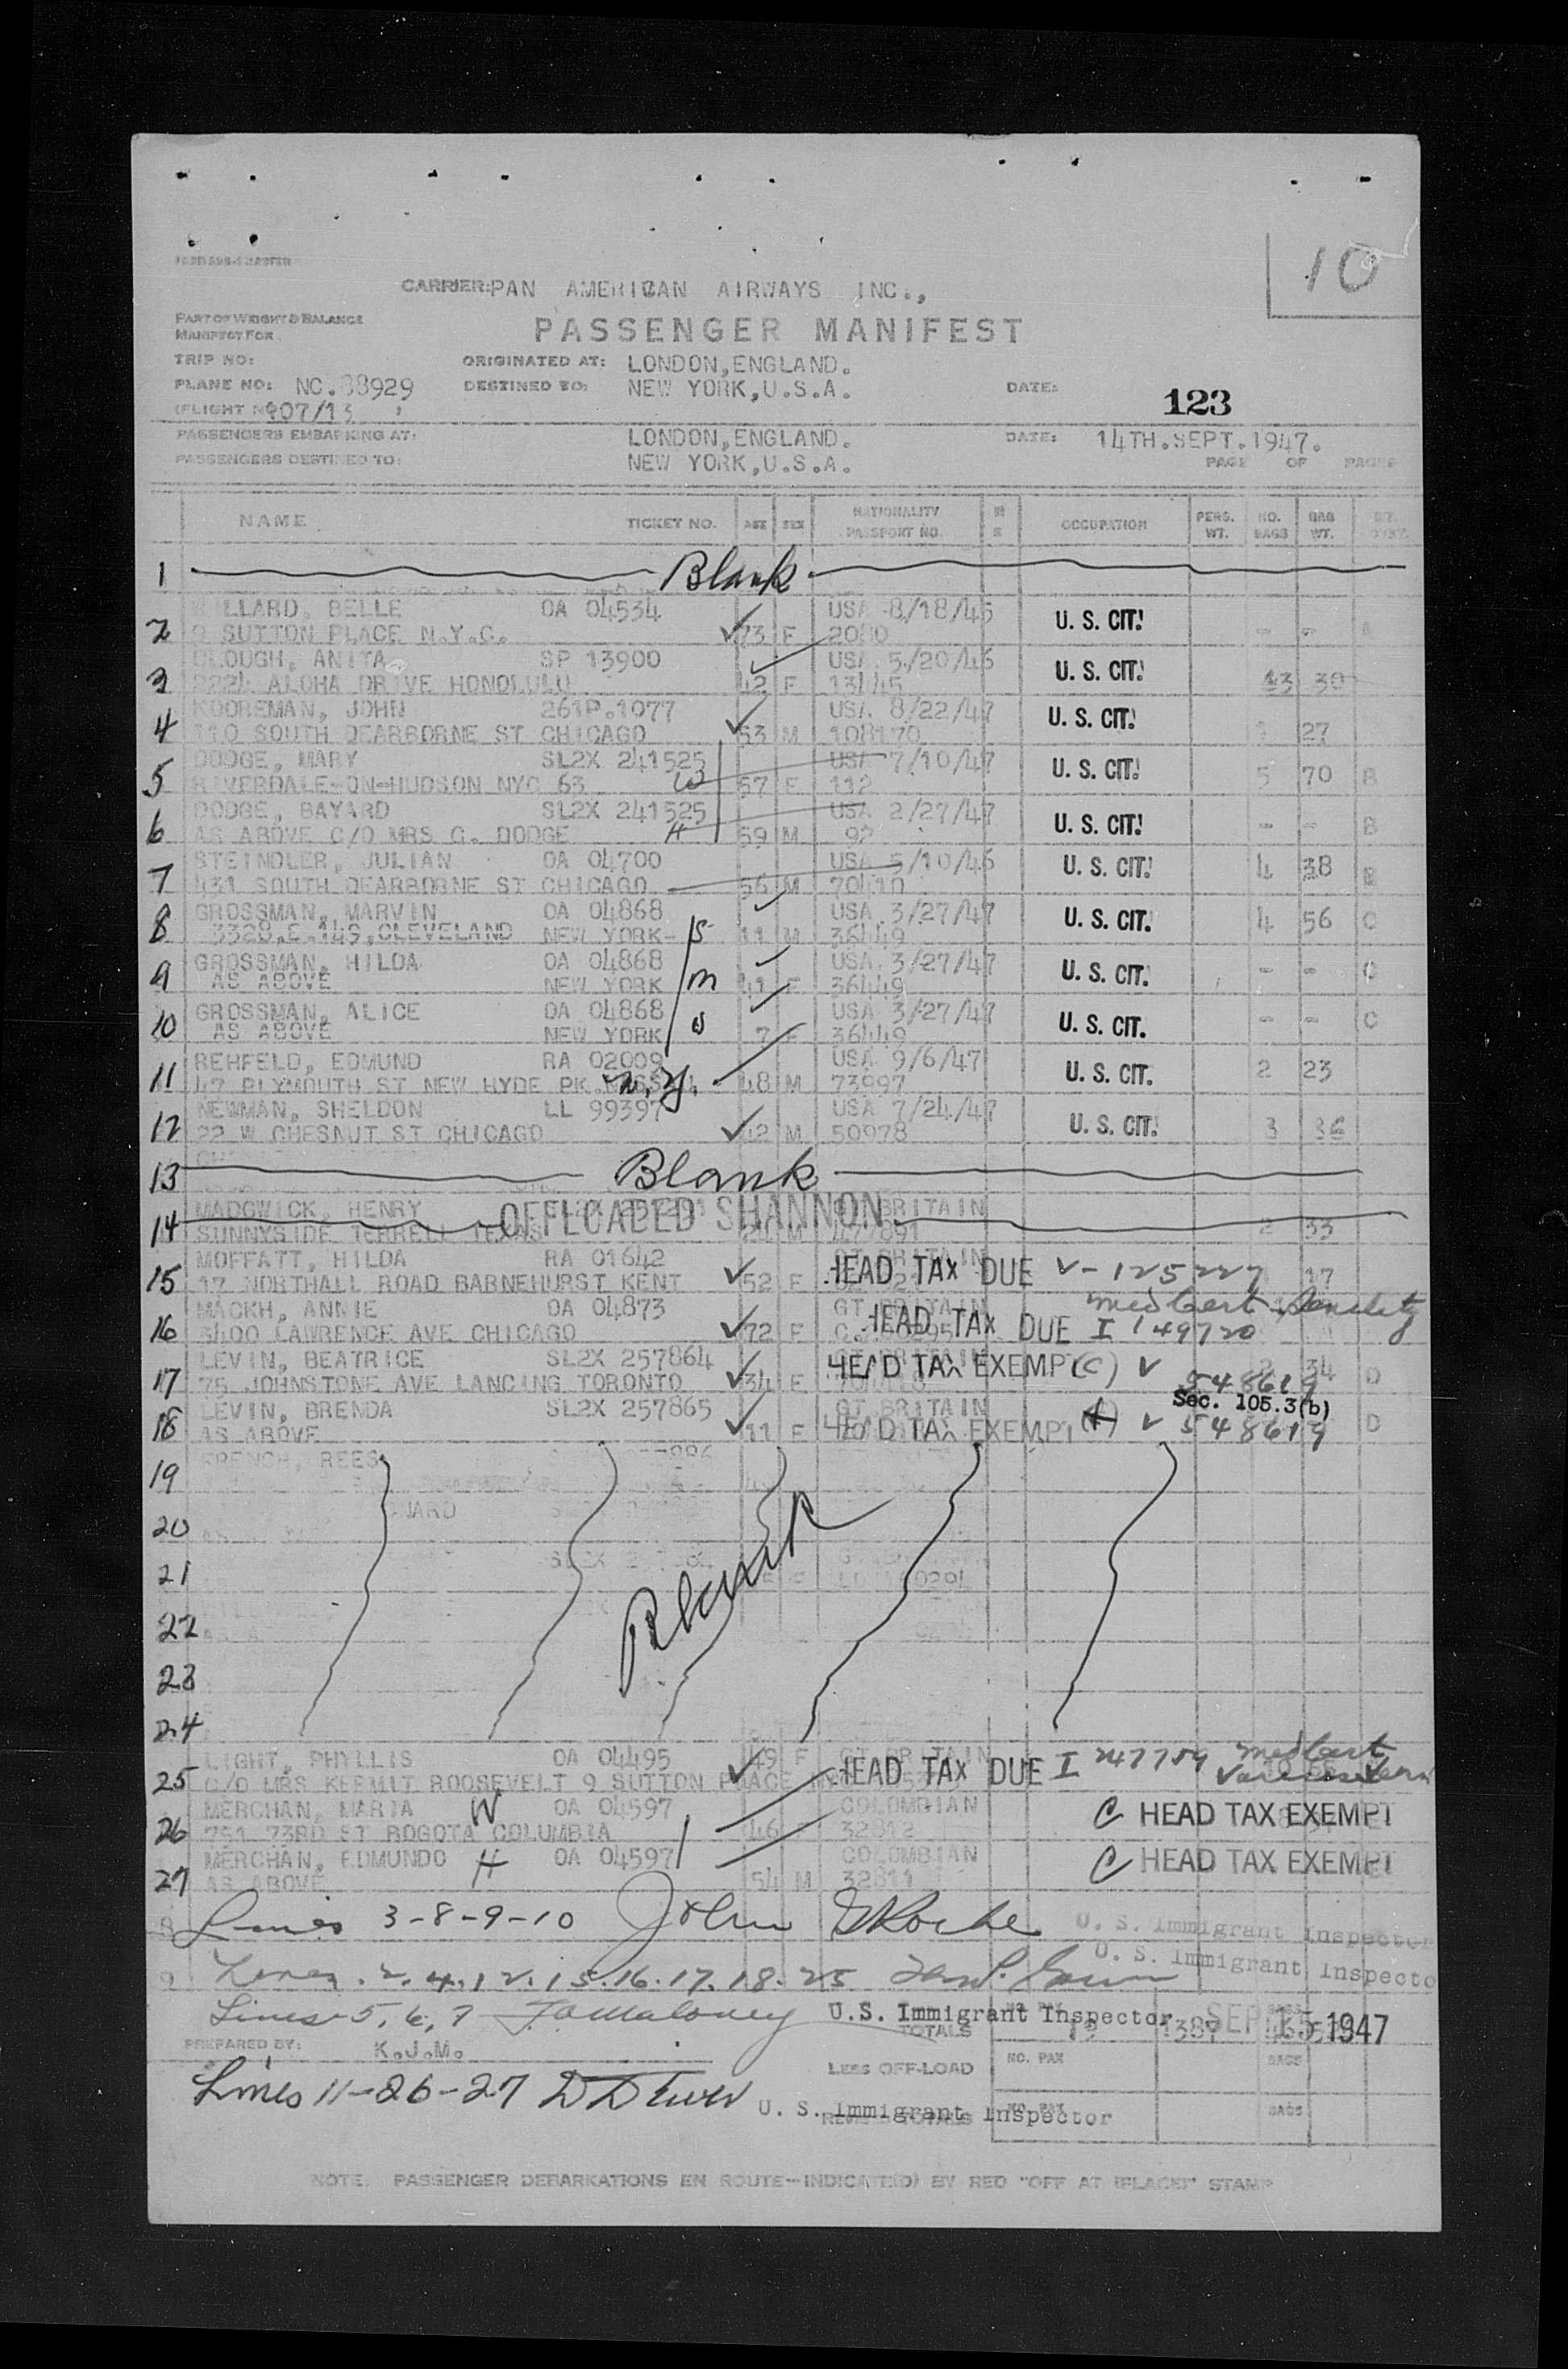 10
CARRIER: PAN AMERICAN AIRWAYS INC.,
PART OF WEIGHT & BALANCE
MANIFEST FOR
PASSENGER MANIFEST
TRIP NO: ORIGINATED AT: LONDON,ENGLAND.
PLANE NO: NC.88929 DESTINED TO: NEW YORK,U.S.A. DATE: 123
(FLIGHT NO 907/13 )
PASSENGERS EMBARKING AT: LONDON,ENGLAND. DATE: 14TH.SEPT.1947.
PASSENGERS DESTINED TO: NEW YORK,U.S.A. PAGE OF PAGES
NAME TICKET NO. AGE SEX NATIONALITY PASSPORT NO. M S OCCUPATION PERS. WT. NO. BAGS BAG WT.
1 Blank
WILLARD, BELLE OA 04534 USA 8/18/45 U. S. CIT.
2 9 SUTTON PLACE N.Y.C. 73 F 2080 - -
CLOUGH, ANITA SP 13900 USA 5/20/46 U. S. CIT.
3 2224 ALOHA DRIVE HONOLULU 42 F 13445 43 30
KOOREMAN, JOHN 261P.1077 USA 8/22/47 U. S. CIT.
4 110 SOUTH DEARBORNE ST CHICAGO 53 M 108170 27
DODGE, MARY SL2X 241525 USA 7/10/47 U. S. CIT.
5 RIVERDALE-ON-HUDSON NYC 63 W 57 F 112 5 70 B
DODGE, BAYARD SL2X 241525 USA 2/27/47 U. S. CIT.
6 AS ABOVE C/O MRS G. DODGE H 59 M 92 - - B
STEINDLER, JULIAN OA 04700 USA 5/10/46 U. S. CIT.
7 431 SOUTH DEARBORNE ST CHICAGO 56 M 70410 4 38 B
GROSSMAN, MARVIN OA 04868 USA 3/27/47 U. S. CIT. 4 56 C
8 3328.E.149,CLEVELAND NEW YORK- S 11 M 36449
GROSSMAN, HILDA OA 04868 USA 3/27/47 U. S. CIT. - - C
9 AS ABOVE NEW YORK M 41 F 36449
GROSSMAN, ALICE OA 04868 USA 3/27/47 U. S. CIT. - - C
10 AS ABOVE NEW YORK 7 F 36449
REHFELD, EDMUND RA 02009 USA 9/6/47 U. S. CIT. 2 23
11 47 PLYMOUTH ST NEW HYDE PK N.Y. 48 M 73997
NEWMAN, SHELDON LL 99397 USA 7/24/47 U. S. CIT.
12 22 W CHESNUT ST CHICAGO 42 M 50978 3 36
13 Blank
MADGWICK, HENRY OFFLOADED SHANNON BRITAIN
14 SUNNYSIDE TERRELL TEXAS M 2 33
MOFFATT, HILDA RA 01642 GT BRITAIN
15 17 NORTHALL ROAD BARNEHURST KENT 52 F HEAD TAX DUE V-125227 17
MACKH, ANNIE OA 04873 GT BRITAIN Med Cert Senility
16 3400 LAWRENCE AVE CHICAGO 72 F HEAD TAX DUE I 149720
LEVIN, BEATRICE SL2X 257864 HEAD TAX EXEMPT (C) V 34
17 75 JOHNSTONE AVE LANCING TORONTO 34 F 548619 D
LEVIN, BRENDA SL2X 257865 GT BRITAIN Sec. 105.3(b)
18 AS ABOVE 11 F HEAD TAX EXEMPT V 548619 D
19 FRENCH, REES
20
21
22
23
24
Blank
LIGHT, PHYLLIS OA 04495 49 F GT BRITAIN
25 C/O MRS KERMIT ROOSEVELT 9 SUTTON PLACE HEAD TAX DUE I 247759 Med Cert
MERCHAN, MARIA W OA 04597 COLOMBIAN C HEAD TAX EXEMPT
26 751 73RD ST BOGOTA COLUMBIA 46 32812
MERCHAN, EDMUNDO H OA 04597 COLOMBIAN C HEAD TAX EXEMPT
27 AS ABOVE 54 M 32811
Lines 3-8-9-10 John Roche U. S. Immigrant Inspector
Lines 2.4.12.15.16.17.18.25 U. S. Immigrant Inspector
Lines 5,6,7 Maloney U.S. Immigrant Inspector SEP 15 1947
TOTALS NO. PAX
PREPARED BY: K.J.M.
LESS OFF-LOAD NO. PAX BAGS
Lines 11-26-27 U. S. Immigrant Inspector
REVISED TOTALS NO. PAX BAGS
NOTE. PASSENGER DEBARKATIONS EN ROUTE—INDICATE(D) BY RED "OFF AT (PLACE)" STAMP